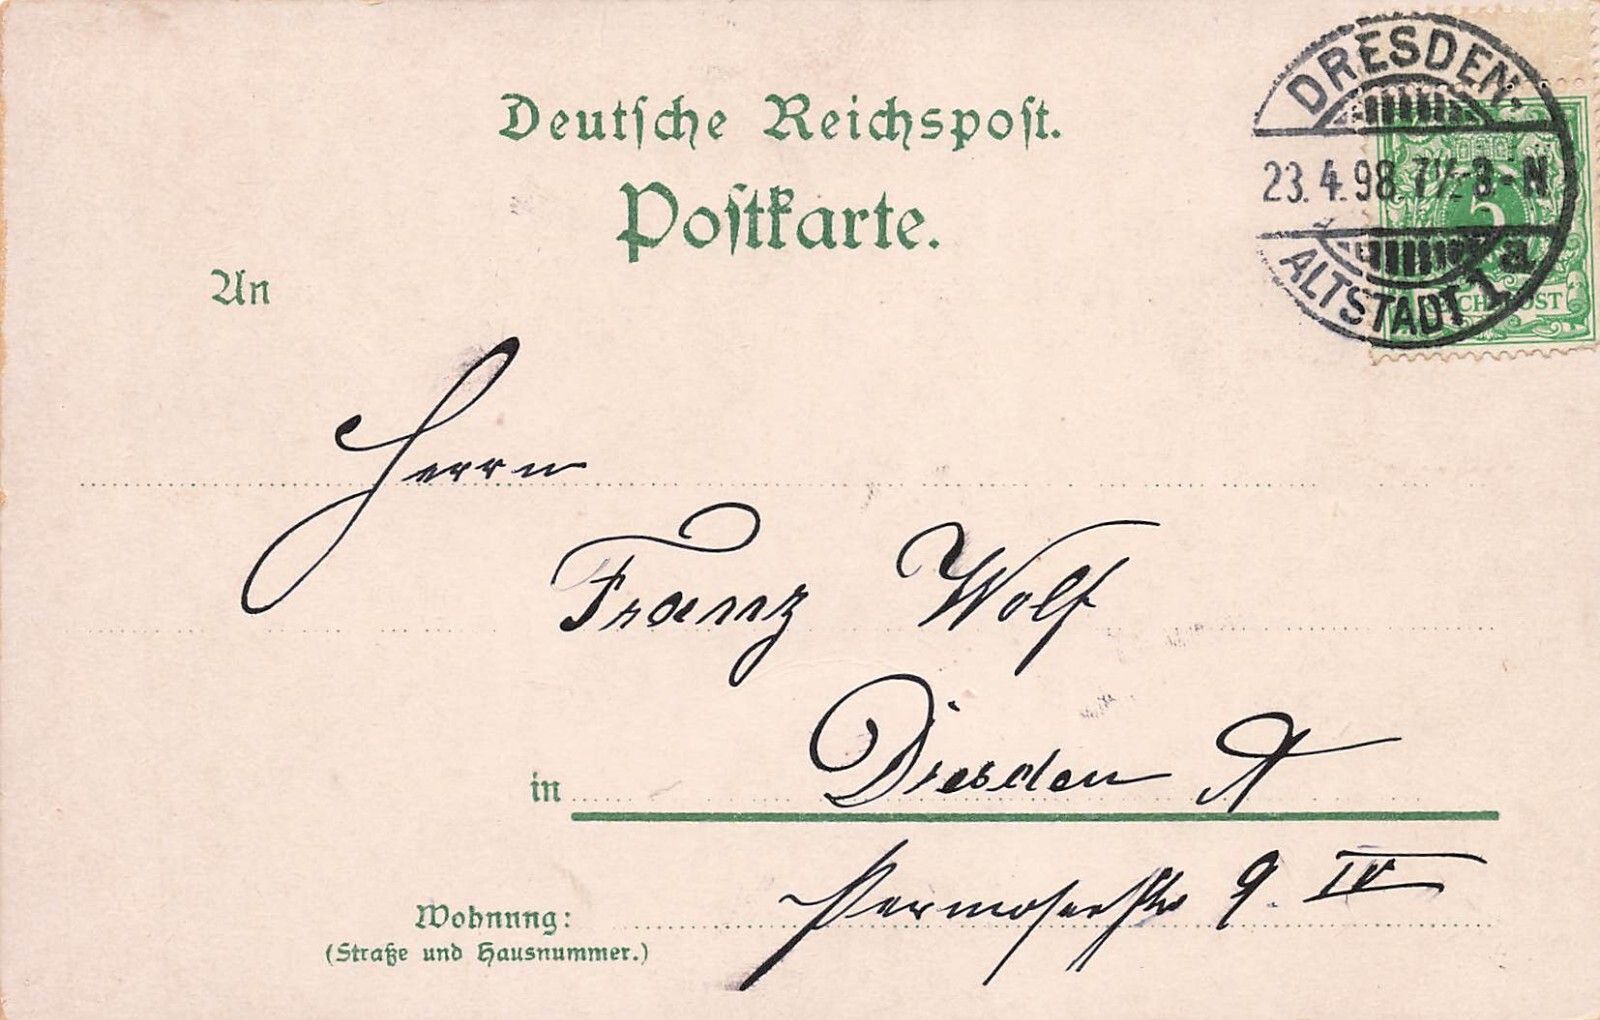 Deutsche Reichspost.
Postkarte.
DRESDEN-
23.4.98. 7½-8-N
ALTSTADT 1 a
5
REICHSPOST
An
Herrn
Franz Wolf
in Dresden A
Wohnung: Permoserstr 9. IV
(Straße und Hausnummer.)